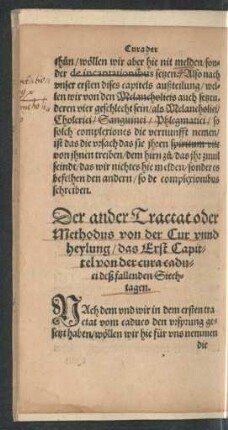 Cura der
thün/wöllen wir aber hie nit melden/son-
der de incantationibus setzen. Also nach
vnser ersten disses capitels auffteilung/wö-
len wir von den Melancholicis auch setzen,
deren vier geschlecht sein/als Melancholici/
Cholerici/Sanguinei/Phlegmatici/so
solch complexiones die vernunfft nemen/
ist das die vrsach das sie jhren spiritum vitæ
von jhnen treiben/dem hirn zů/das jhr zuuil
seindt/das wir nichtes hie melden/sonder es
befelhen den andern/so de complexionibus
schreiben.
Der ander Tractat oder
Methodus von der Cur vnnd
heylung/das Erst Capit-
tel von der cura cadu-
ci deß fallenden Siech-
tagen.
NAch dem vnd wir in dem ersten tra
ctat vom caduco den vrsprung ge-
setzt haben/wöllen wir hie für vns nemmen
die